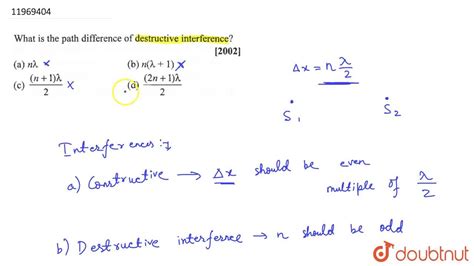 11969404
What is the path difference of destructive interference?
[2002]
(a) nλ x
(b) n(λ + 1) x
(c) (n+1)λ/2 x
(d) (2n+1)λ/2
Δx = n λ/2
S1 S2
Interferences :-
a) Constructive → Δx should be even
multiple of λ/2
b) Destructive interferree → n should be odd
doubtnut